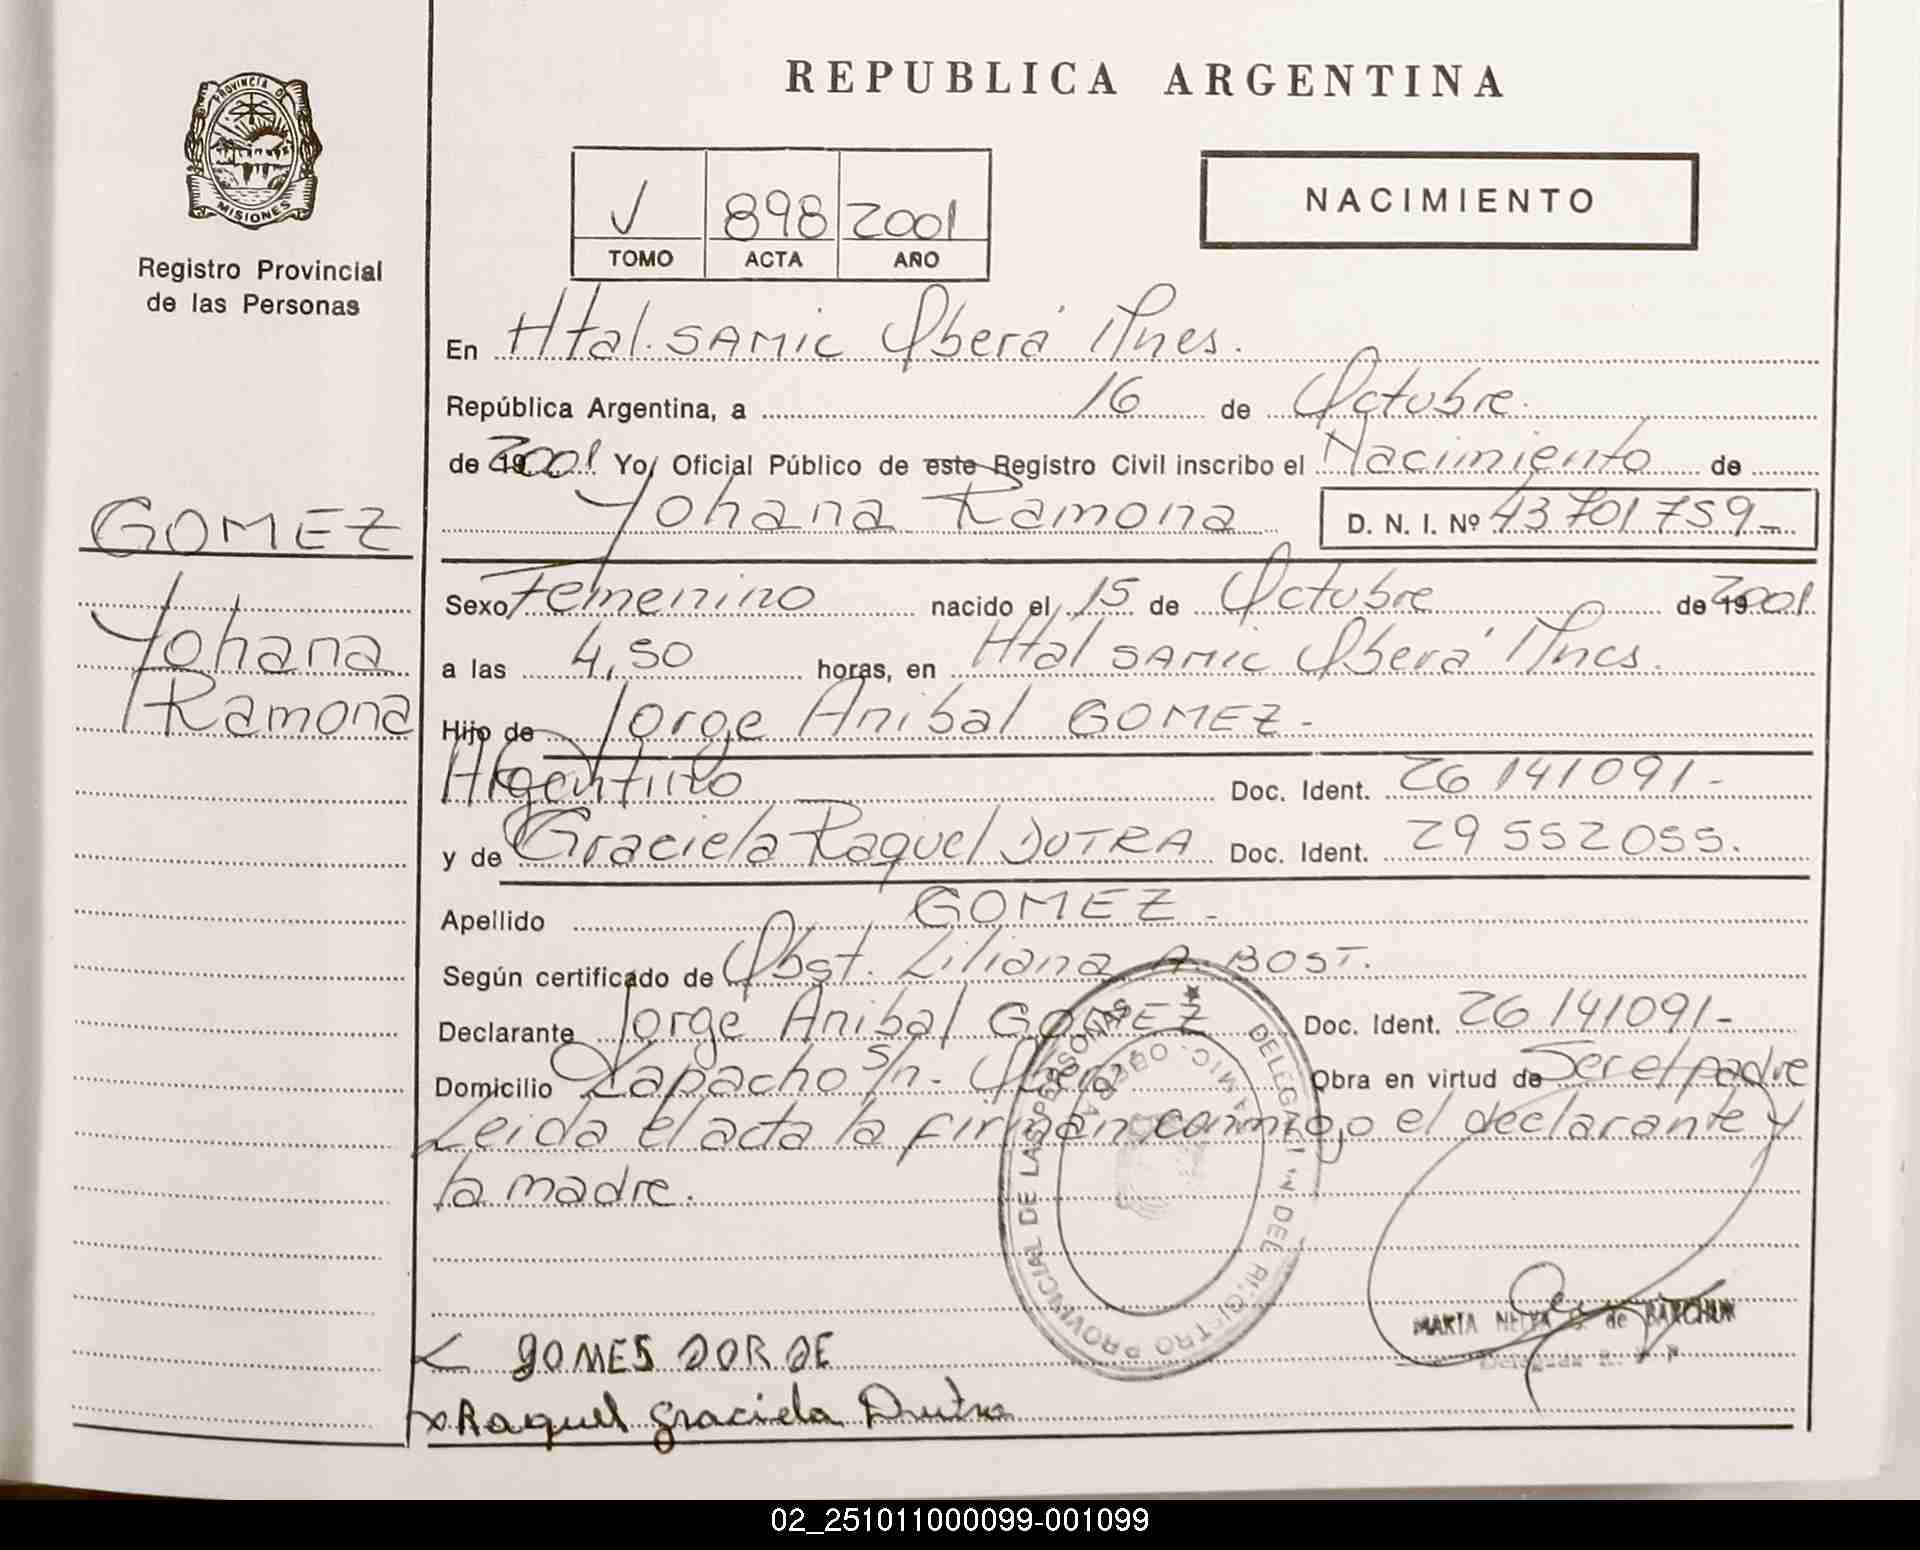 REPUBLICA ARGENTINA
PROVINCIA D
MISIONES
Registro Provincial
de las Personas
V 898 2001
TOMO ACTA AÑO
NACIMIENTO
En Htal. SAMIC Oberá Mnes.
República Argentina, a 16 de Octubre.
de 2001 Yo, Oficial Público de este Registro Civil inscribo el Nacimiento de
Yohana Ramona D. N. I. Nº 43701759-
GOMEZ
Yohana
Ramona
Sexo Femenino nacido el 15 de Octubre de 2001
a las 4,50 horas, en Htal SAMIC Oberá Mnes.
Hijo de Jorge Anibal GOMEZ-
Argentino Doc. Ident. 26141091-
y de Graciela Raquel DUTRA Doc. Ident. 29552055.
Apellido GOMEZ-
Según certificado de Obst. Liliana A. BOST.
Declarante Jorge Anibal GOMEZ Doc. Ident. 26141091-
Domicilio Lapacho s/n- Oberá Obra en virtud de Ser el padre
Leida el acta la firman conmigo el declarante y
la madre.
DEL REGISTRO PROVINCIAL DE LAS PERSONAS
MARIA de
GOMES JORGE
x Raquel Graciela Dutra
02_251011000099-001099